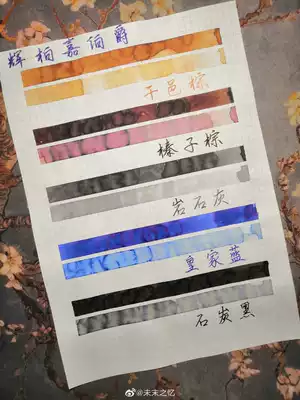 辉柏嘉伯爵
干邑棕
榛子棕
岩石灰
皇家蓝
石炭黑
@未末之忆